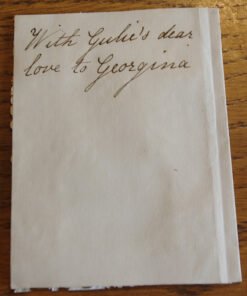 With Gulie's dear
love to Georgina